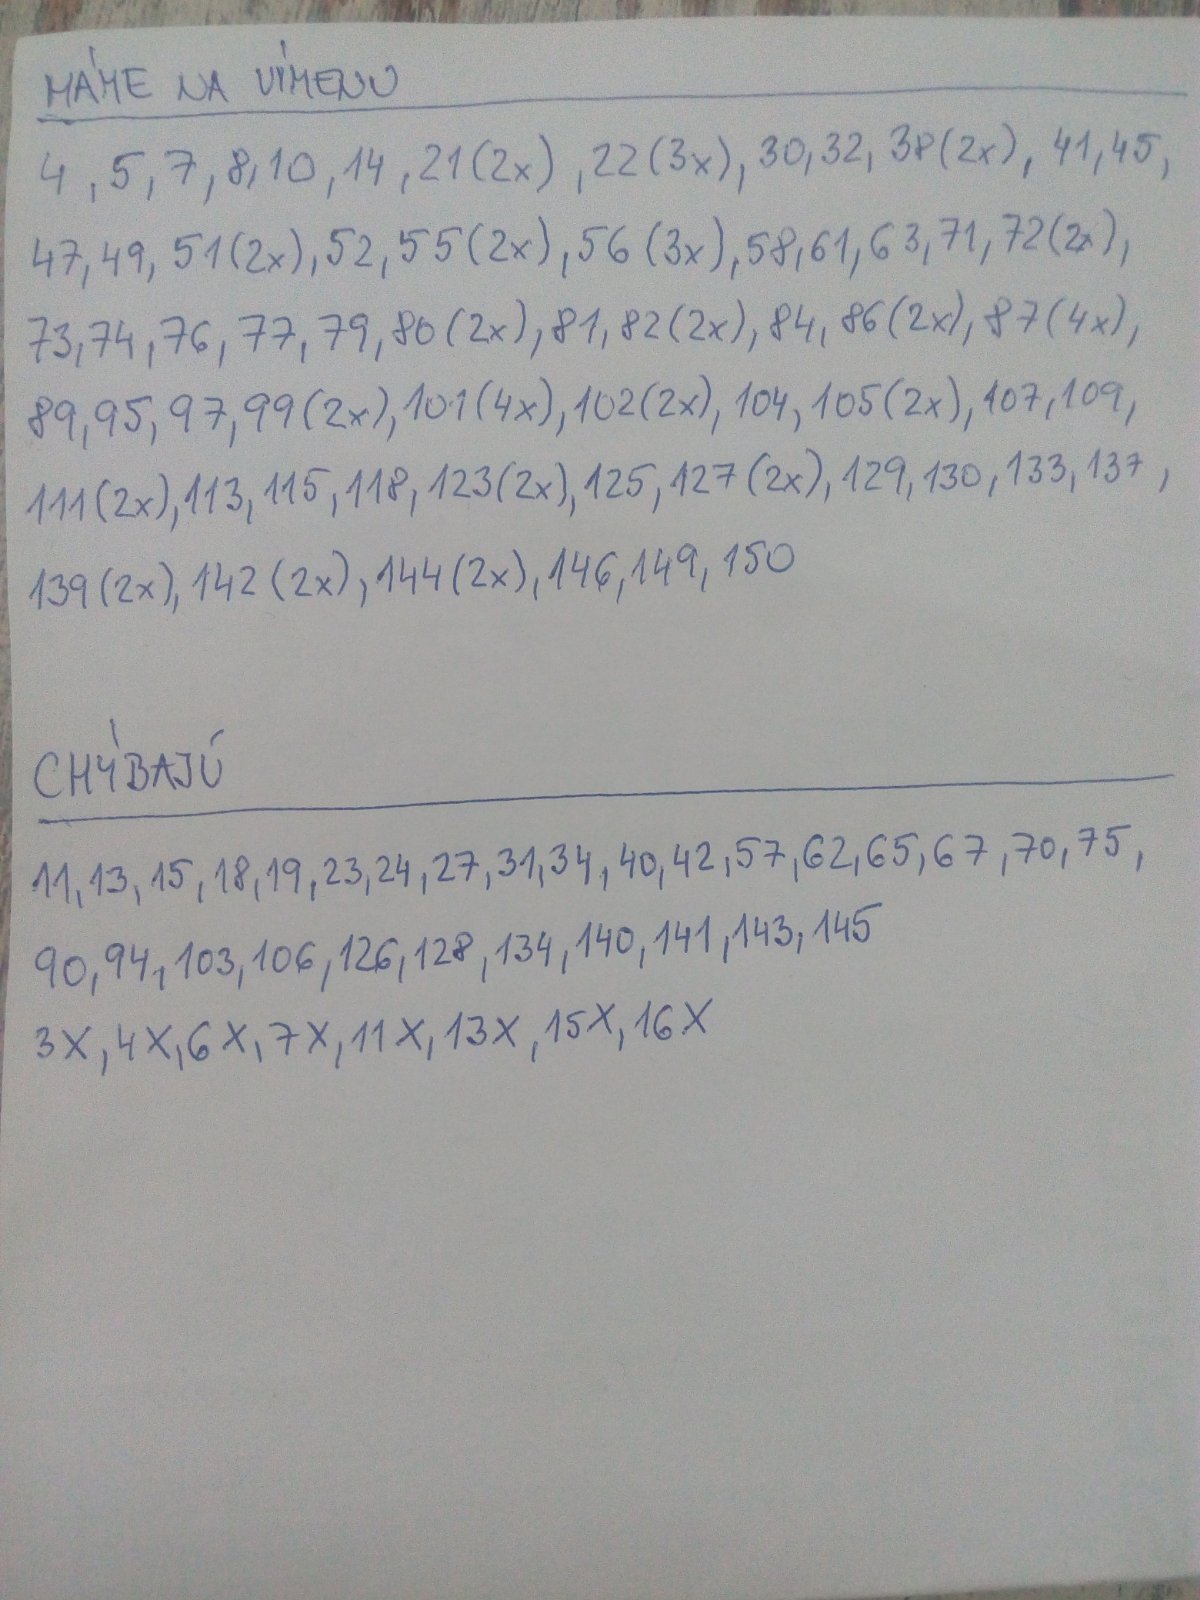 MÁME NA VÍMENU
4, 5, 7, 8, 10, 14, 21(2x), 22(3x), 30, 32, 38(2x), 41, 45,
47, 49, 51(2x), 52, 55(2x), 56(3x), 58, 61, 63, 71, 72(2x),
73, 74, 76, 77, 79, 80(2x), 81, 82(2x), 84, 86(2x), 87(4x),
89, 95, 97, 99(2x), 101(4x), 102(2x), 104, 105(2x), 107, 109,
111(2x), 113, 115, 118, 123(2x), 125, 127(2x), 129, 130, 133, 137,
139(2x), 142(2x), 144(2x), 146, 149, 150
CHÝBAJÚ
11, 13, 15, 18, 19, 23, 24, 27, 31, 34, 40, 42, 57, 62, 65, 67, 70, 75,
90, 94, 103, 106, 126, 128, 134, 140, 141, 143, 145
3X, 4X, 6X, 7X, 11X, 13X, 15X, 16X